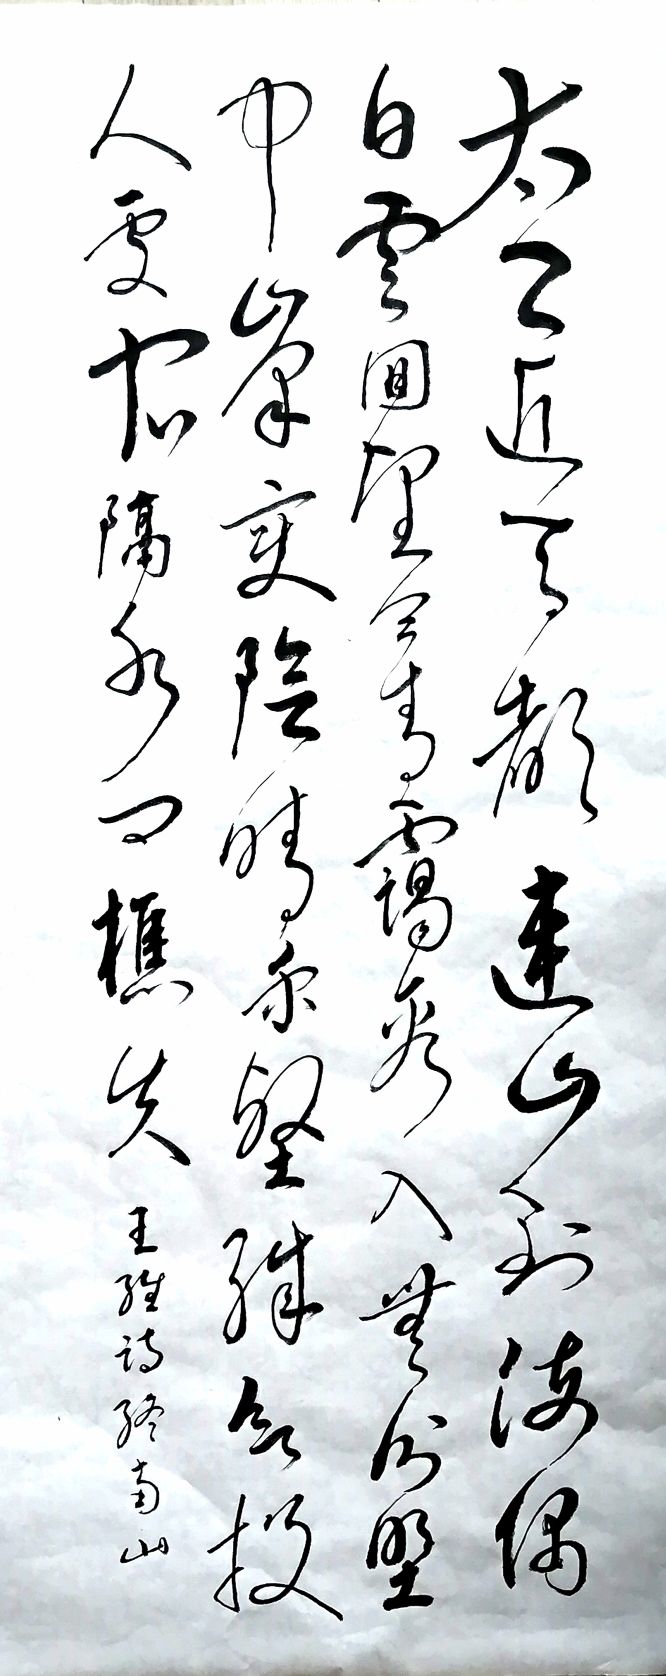 太乙近天都連山到海隅
白雲回望合青靄看入無分野
中峯變陰晴衆壑殊欲投
人處宿隔水問樵夫
王維詩終南山